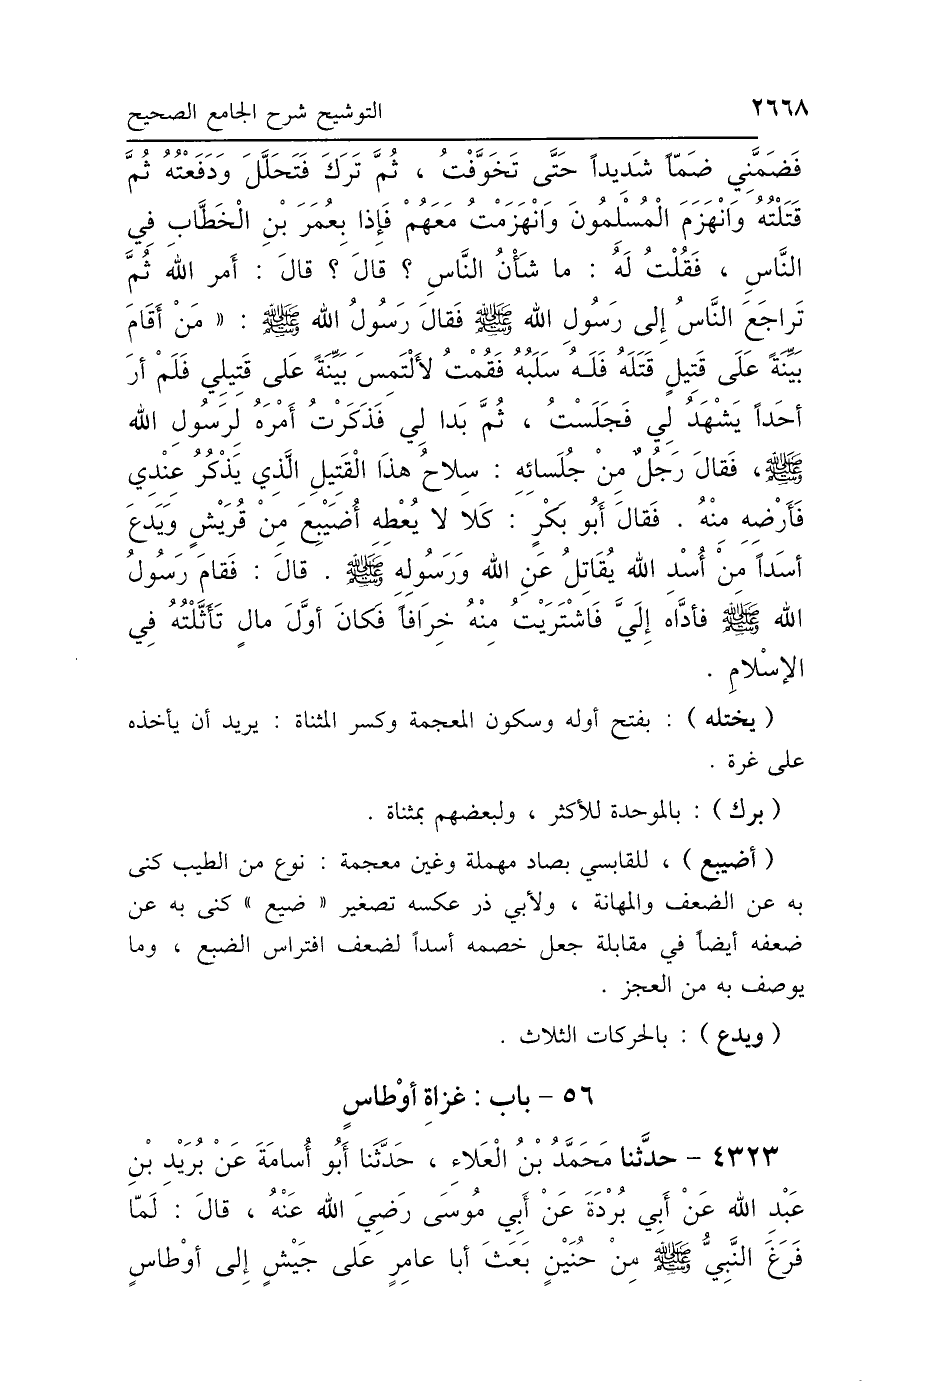 ٢٦٦٨ التوشيح شرح الجامع الصحيح
فَضَمَّنِي ضَمّاً شَدِيداً حَتَّى تَخَوَّفْتُ ، ثُمَّ تَرَكَ فَتَحَلَّلَ وَدَفَعْتُهُ ثُمَّ
قَتَلْتُهُ وَانْهَزَمَ الْمُسْلِمُونَ وَانْهَزَمْتُ مَعَهُمْ فَإِذا بِعُمَرَ بْنِ الْخَطَّابِ فِي
النَّاسِ ، فَقُلْتُ لَهُ : ما شَأْنُ النَّاسِ ؟ قالَ ؟ قالَ : أمر الله ثُمَّ
تَراجَعَ النَّاسُ إلى رَسُولِ الله ﷺ فَقالَ رَسُولُ الله ﷺ : « مَنْ أَقَامَ
بَيِّنَةً عَلَى قَتِيلٍ قَتَلَهُ فَلَهُ سَلَبُهُ فَقُمْتُ لأَلْتَمِسَ بَيِّنَةً عَلى قَتِيلِي فَلَمْ أرَ
أحَداً يَشْهَدُ لِي فَجَلَسْتُ ، ثُمَّ بَدا لِي فَذَكَرْتُ أَمْرَهُ لِرَسُولِ الله
ﷺ، فَقالَ رَجُلٌ مِنْ جُلَسائِهِ : سلاحُ هذَا الْقَتِيلِ الَّذِي يَذْكُرُ عِنْدِي
فَأَرْضِهِ مِنْهُ . فَقالَ أَبُو بَكْرٍ : كَلا لا يُعْطِهِ أُضَيْبِعَ مِنْ قُرَيْشٍ وَيَدَعَ
أسَداً مِنْ أُسْدِ الله يُقَاتِلُ عَنِ الله وَرَسُولِهِ ﷺ . قالَ : فَقامَ رَسُولُ
الله ﷺ فأدَّاه إِلَيَّ فَاشْتَرَيْتُ مِنْهُ خِرَافاً فَكانَ أوَّلَ مالٍ تَأَثَّلْتُهُ فِي
الإسْلامِ .
( يختله ) : بفتح أوله وسكون المعجمة وكسر المثناة : يريد أن يأخذه
على غرة .
( برك ) : بالموحدة للأكثر ، ولبعضهم بمثناة .
( أضيبع ) ، للقابسي بصاد مهملة وغين معجمة : نوع من الطيب كنى
به عن الضعف والمهانة ، ولأبي ذر عكسه تصغير « ضيع » كنى به عن
ضعفه أيضاً في مقابلة جعل خصمه أسداً لضعف افتراس الضبع ، وما
يوصف به من العجز .
( ويدع ) : بالحركات الثلاث .
٥٦ - باب : غزاة أوْطاسٍ
٤٣٢٣ - حدَّثنا مُحَمَّدُ بْنُ الْعَلاءِ ، حَدَّثَنا أَبُو أُسامَةَ عَنْ بُرَيْدِ بْنِ
عَبْدِ الله عَنْ أَبِي بُرْدَةَ عَنْ أَبِي مُوسَى رَضِيَ الله عَنْهُ ، قالَ : لَمّا
فَرَغَ النَّبِيُّ ﷺ مِنْ حُنَيْنٍ بَعَثَ أبا عامِرٍ عَلى جَيْشٍ إلى أوْطاسٍ